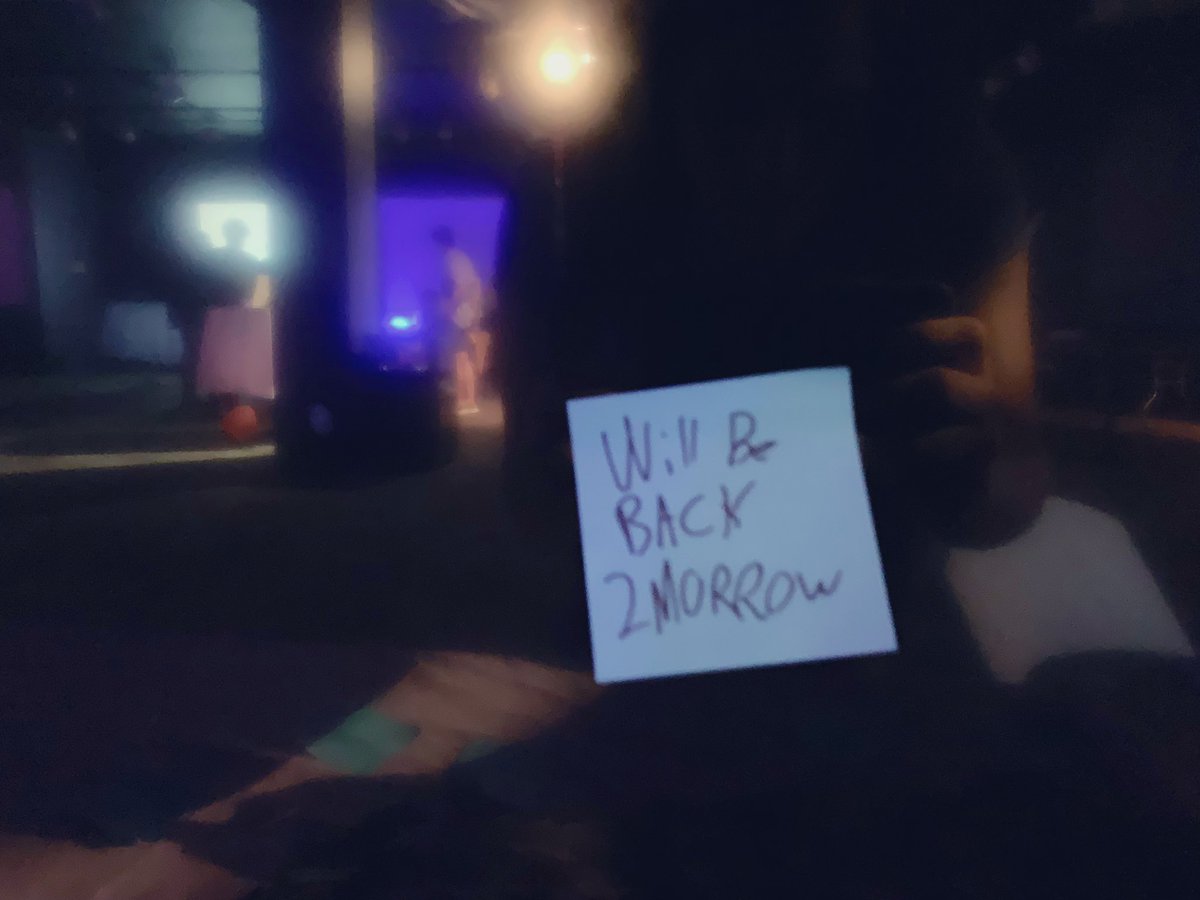 Will Be
BACK
2MORROW